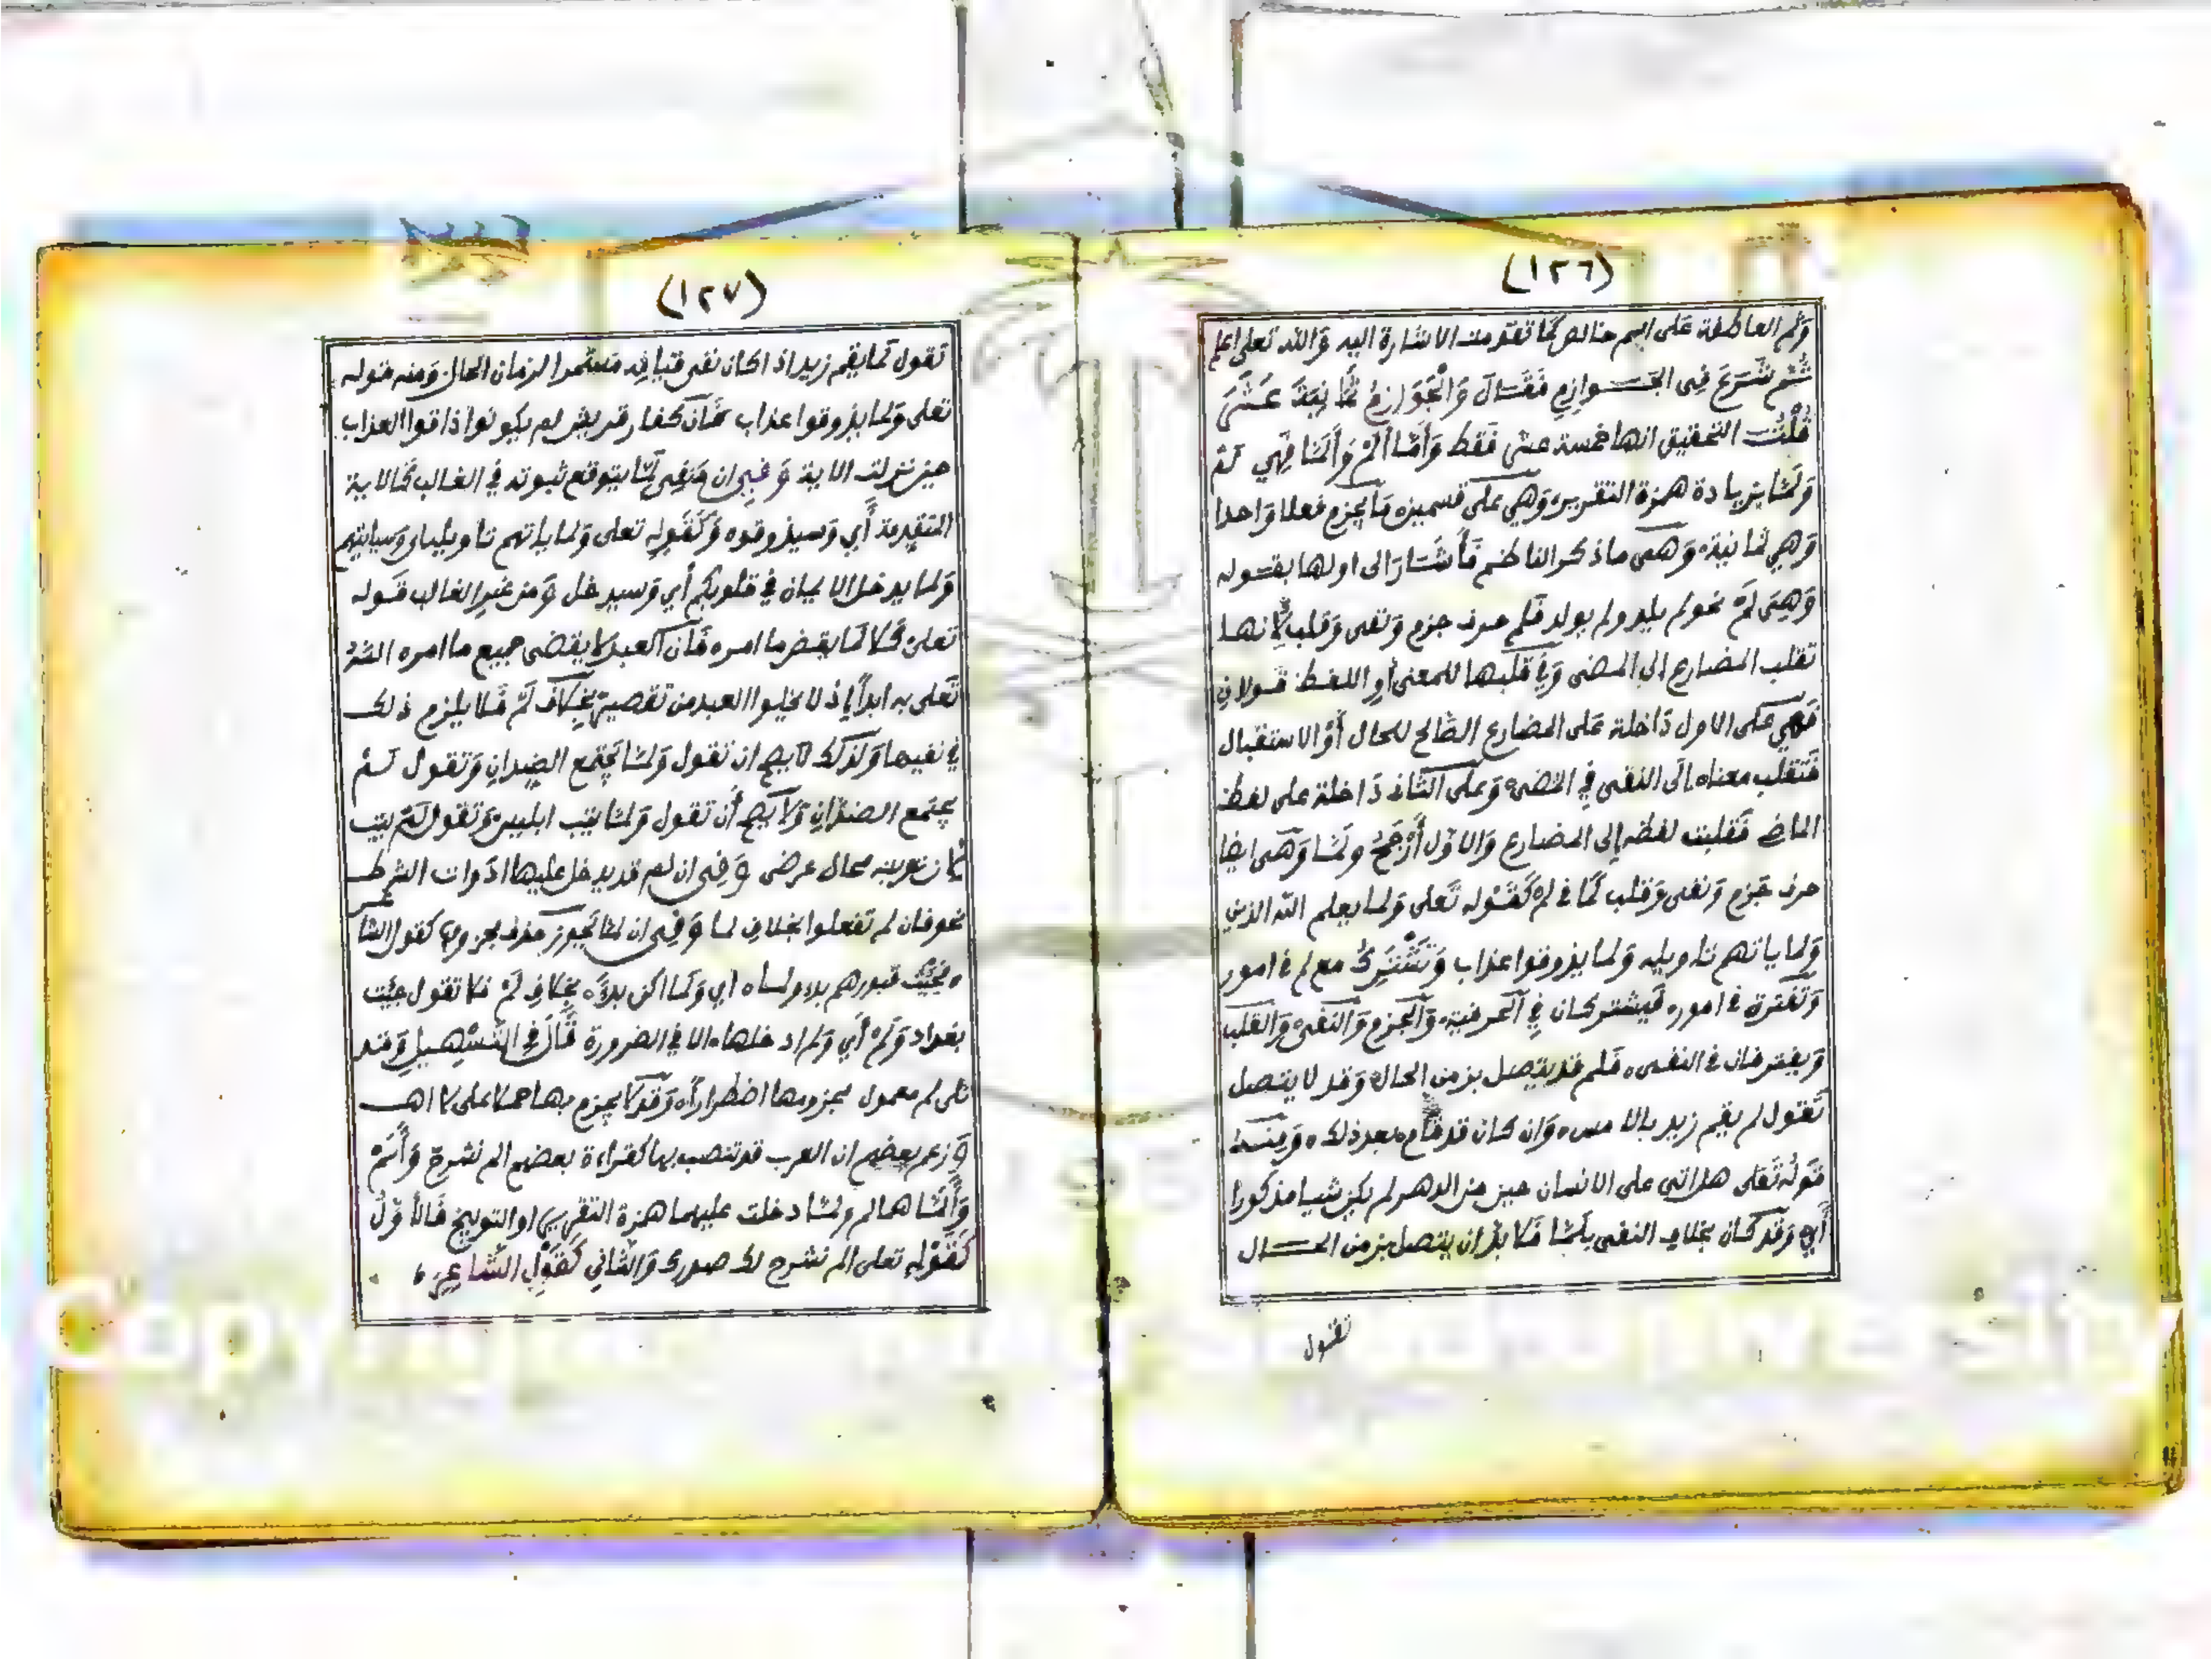 (١٢٦)
وثم العاطفة على اسم خالص كما تقدمت الاشارة اليه والله تعلى اعلم
ثم شرع في الجوازم فقال والجوازم ثمانية عشر
قلت التحقيق انها خمسة عشر فقط وأما ألم وألما فهي لم
ولما بزيادة همزة التقرير وهي على قسمين ما يجزم فعلا واحدا
وهي ثمانية وهي ماذكر الناظم فأشار الى اولها بقوله
وهي لم نحو لم يلد ولم يولد فلم حرف جزم ونفي وقلب لانها
تقلب المضارع الى المضى وفي قلبها للمعنى أو اللفظ قولان
فهي على الاول داخلة على المضارع الصالح للحال أو الاستقبال
فتقلب معناه إلى النفى في المضي وعلى الثاني داخلة على لفظ
الماظ فقلبت لفظه إلى المضارع والاول أرجح ولما وهي ايضا
حرف جزم ونفى وقلب كما في لم كقوله تعلى ولما يعلم الله الذين
ولما ياتهم تاويله ولما يذوقوا عذاب وتشترك مع لم في امور
وتفترق في امور فيشتركان في الحرفية والجزم والنفي والقلب
ويفترقان في النفى فلم قد يتصل بزمن الحال وقد لا يتصل
تقول لم يقم زيد بالامس وان كان قد قام بعد ذلك ومنه
قوله تعلى هل اتى على الانسان حين من الدهر لم يكن شيا مذكورا
أي وقد كان بخلاف النفى بلما فلا بد ان يتصل بزمن الحال
تقول
(١٢٧)
تقول لما يقم زيد اذا كان نفى قيامه مستمرا لزمان الحال ومنه قوله
تعلى ولما يذوقوا عذاب فان كفار قريش لم يكونوا ذاقوا العذاب
حين نزلت الاية وفي ان منفي لما يتوقع ثبوته في الغالب كالاية
المتقدمة أي وسيذوقوه وكقوله تعلى ولما ياتهم تاويله اي وسياتيهم
ولما يدخل الايمان في قلوبكم أي وسيدخل ومن غير الغالب قوله
تعلى كلا لما يقض ما امره فان العبد لا يقضى جميع ما امره الله
تعلى به ابدا إذ لا يخلوا العبد من تقصير بخلاف لم فلا يلزم ذلك
في نفيها ولذلك لا يصح ان تقول ولما يجتمع الضدان وتقول لم
يجتمع الضدان ولا يصح أن تقول ولما يتب ابليس وتقول لم يتب
لان توبته محال عرضى وفي ان لم قد يدخل عليها ادوات الشرط
نحو فان لم تفعلوا بخلاف لما وفي ان لما يجوز حذف مجزومها كقول الشاعر
فجئت قبورهم بدءا ولما اي ولما اكن بدءا بخلاف لم فلا تقول جئت
بغداد ولم أي ولم ادخلها الا في الضرورة قال في التسهيل وقد
يلى لم معمول مجزومها اضطرارا وقد لا يجزم بها حملا على لا اهـ
وزعم بعضهم ان العرب قد تنصب بها كقراءة بعضهم الم نشرح وألم
وألما هما لم ولما دخلت عليهما همزة التقرير او التوبيخ فالأول
كقوله تعلى الم نشرح لك صدرك والثاني كقول الشاعر